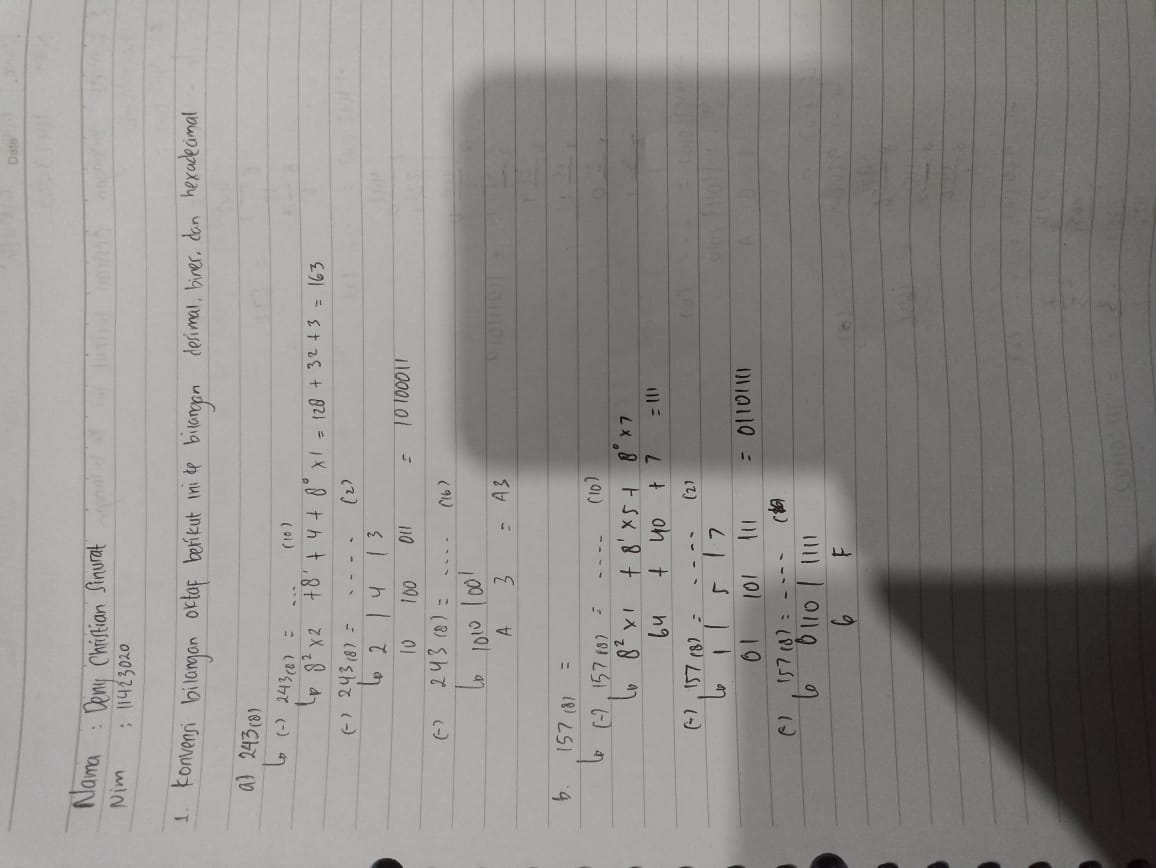 Date
Nama : Deny Christian Sinurat
Nim : 11423020
1. Konversi bilangan oktaf berikut ini ke bilangan desimal, biner, dan hexadecimal
a) 243(8)
↳ (-) 243(8) = ... (10)
↳ 8² x 2 + 8¹ + 4 + 8⁰ x 1 = 128 + 32 + 3 = 163
(-) 243(8) = .... (2)
↳ 2 | 4 | 3
10 100 011 = 10100011
(-) 243(8) = .... (16)
↳ 1010 | 001
A 3 = A3
b. 157(8) =
↳ (-) 157(8) = .... (10)
↳ 8² x 1 + 8¹ x 5 + 8⁰ x 7
64 + 40 + 7 = 111
(-) 157(8) = .... (2)
↳ 1 | 5 | 7
01 101 111 = 01101111
(-) 157(8) = ....
↳ 0110 | 1111
6 F